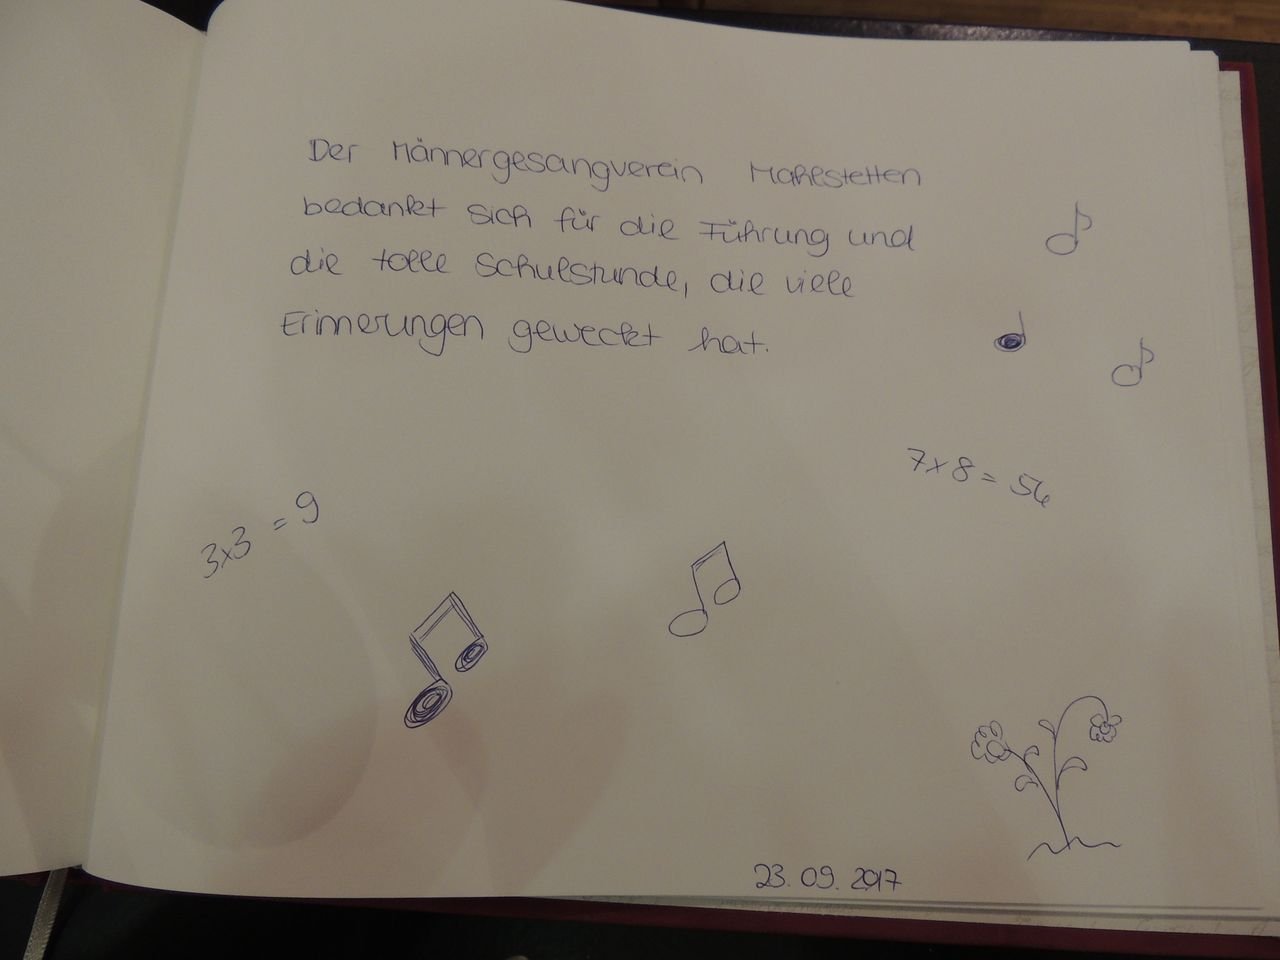 Der Männergesangverein Mahlstetten
bedankt sich für die Führung und
die tolle Schulstunde, die viele
Erinnerungen geweckt hat.
7x8 = 56
3x3 = 9
23.09.2017